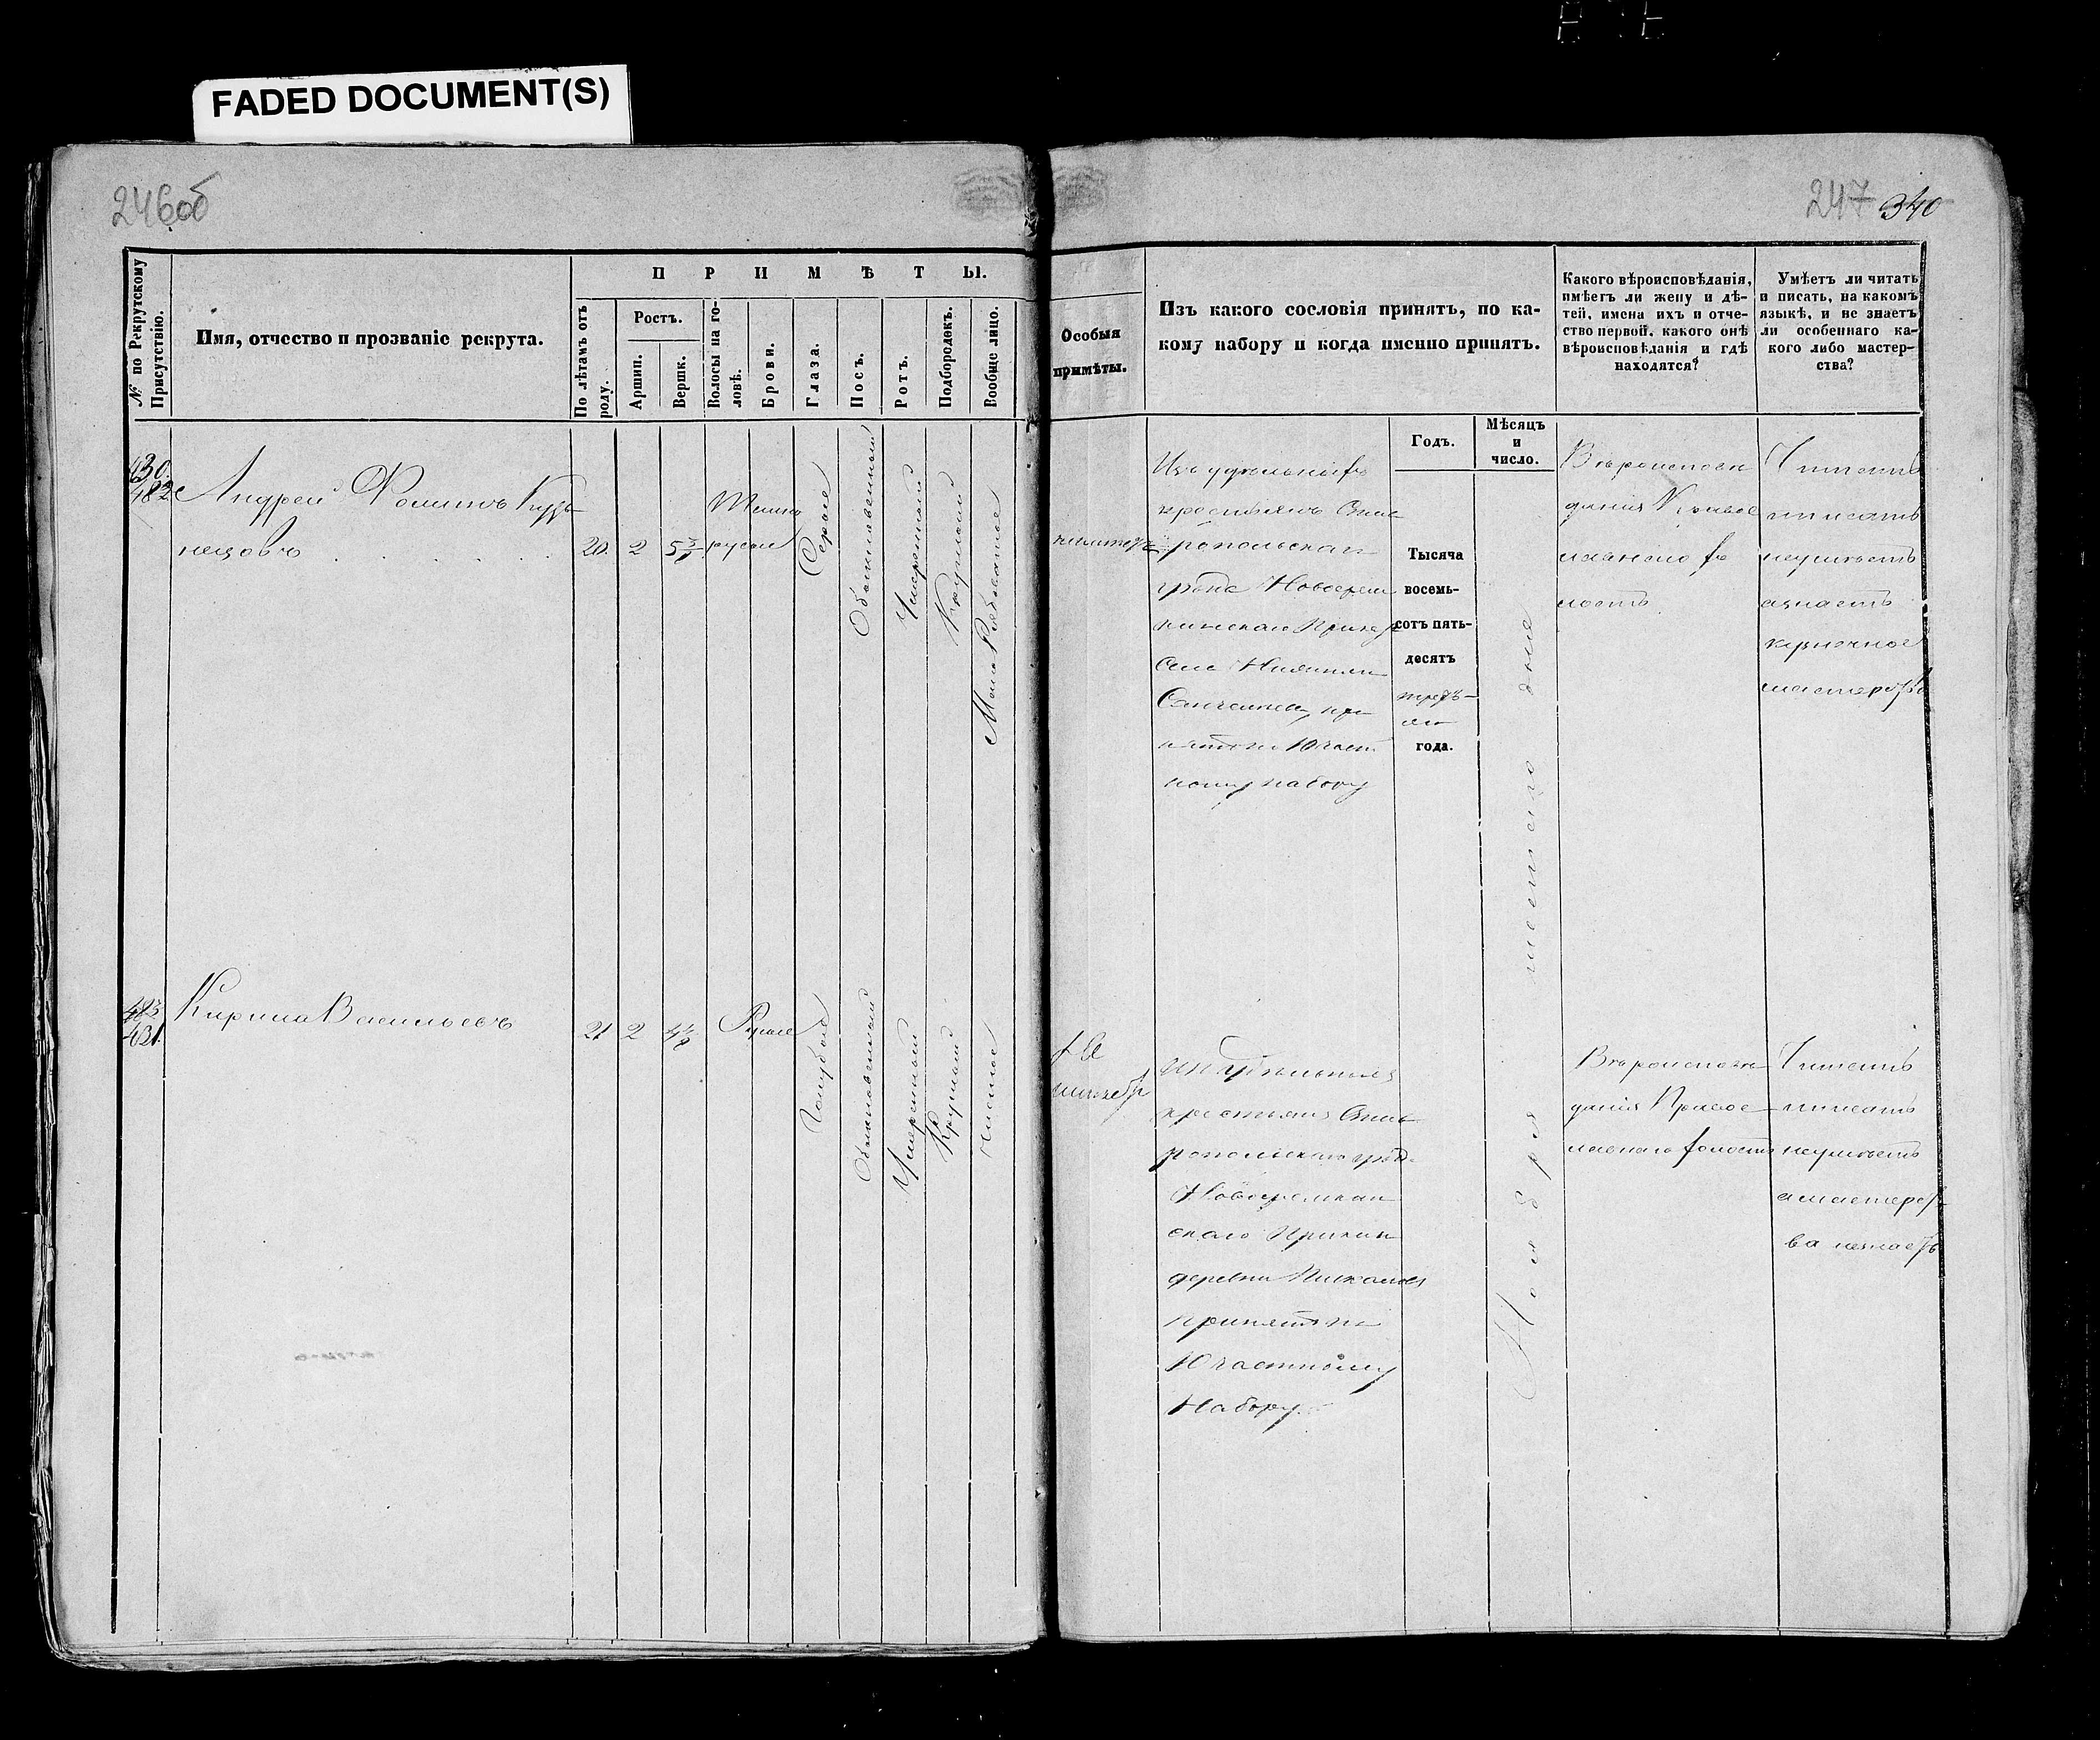 FADED DOCUMENT(S)
246об
247 340
№ по Рекрутскому Присутствію.
Имя, отчество и прозваніе рекрута.
П Р И М Ѣ Т Ы.
По лѣтамъ отъ роду.
Ростъ.
Аршин.
Вершк.
Волосы на головѣ.
Брови.
Глаза.
Носъ.
Ротъ.
Подбородекъ.
Вообще лицо.
Особыя
примѣты.
Изъ какого сословія принятъ, по ка-
кому набору и когда именно принятъ.
Годъ.
Мѣсяцъ
и
число.
Какого вѣроисповѣданія,
имѣетъ ли жену и дѣ-
тей, имена ихъ и отче-
ство первой, какого онѣ
вѣроисповѣданія и гдѣ
находятся?
Умѣетъ ли читать
и писать, на какомъ
языкѣ, и не знаетъ
ли особеннаго ка-
кого либо мастер-
ства?
430.
482
Андрей Фоминъ Куз
нецовъ
20. 2
Темно
русые
Серые
Обыкновенный
Умеренный
Круглый
Изъ удельныхъ
крестьянъ Став
ропольскаго
Приказ
Села
нятъ по Участ
ному набору
Тысяча
восемь-
сотъ пять-
десятъ
треть-
яго
года.
Ноября шестаго дня
Вѣроисповѣ
данія Право
славнаго хо
лостъ
Читать
писать
неумѣетъ
азнаетъ
483
431.
Кирила Васильевъ
21 2
Русые
Голубые
Обыкновенный
Умеренный
Круглый
чистое
крестьянъ Став
ропольскаго
скаго Приказа
деревни
принятъ по
Участному
Набору.
Вѣроисповѣ
данія Право
славнаго холостъ
Читать
писать
неумѣетъ
амастерст
ва незнаетъ